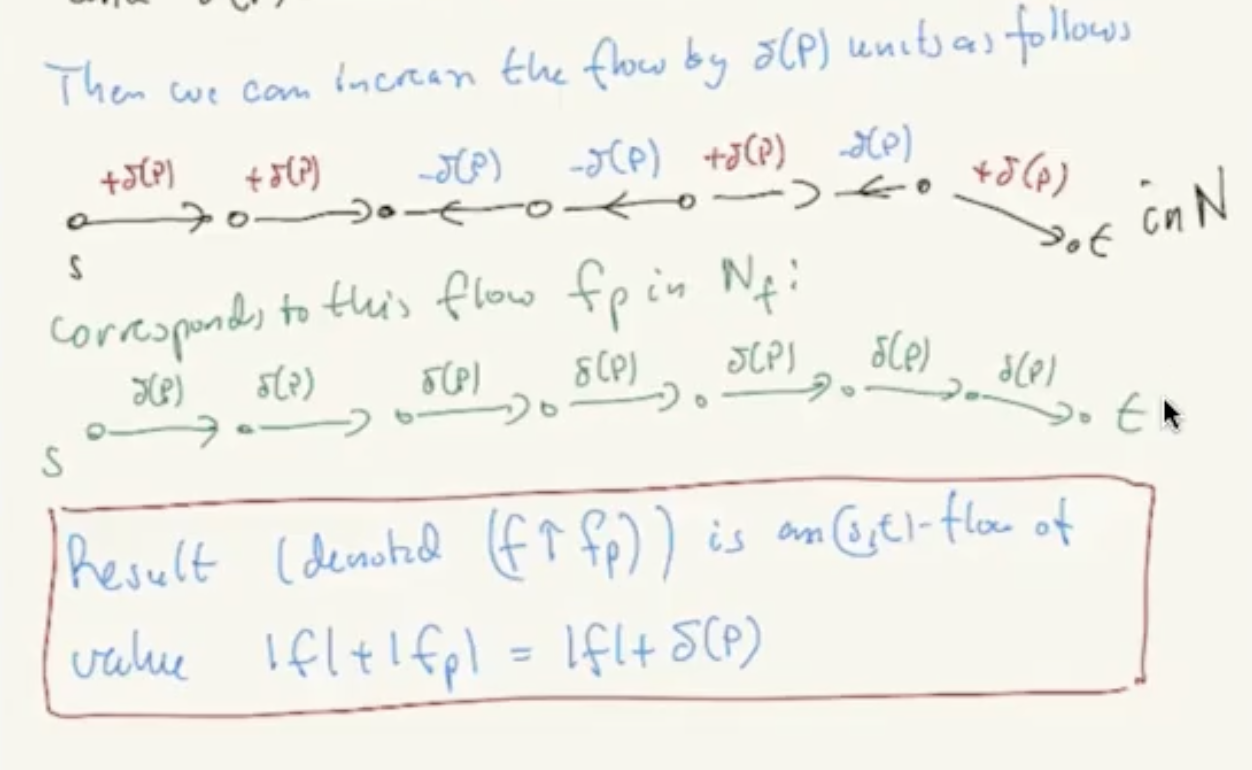 Then we can increase the flow by δ(P) units as follows
+δ(P) +δ(P) -δ(P) -δ(P) +δ(P) -δ(P) +δ(P)
s t in N
corresponds to this flow fₚ in N_f:
δ(P) δ(P) δ(P) δ(P) δ(P) δ(P) δ(P)
s t
Result (denoted (f↑fₚ)) is an (s,t)-flow of
value |f|+|fₚ| = |f|+δ(P)